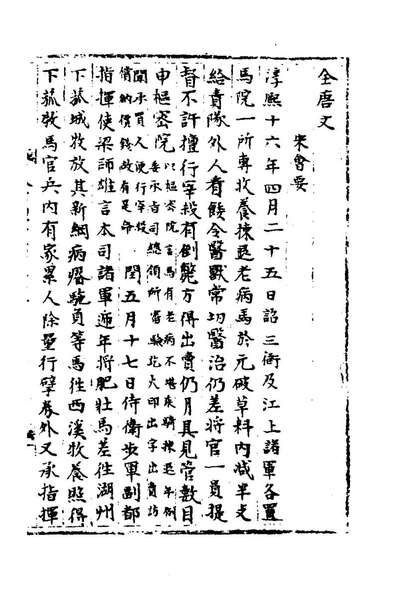 全唐文
宋會要
淳熙十六年四月二十五日詔三衙及江上諸軍各置
馬院一所專收養揀退老病馬於元破草料內減半支
給責隊外人看餵令醫獸常切醫治仍差將官一員提
督不許擅行宰殺有倒斃方得出賣仍月具見管數目
申樞密院以樞密院言馬有老病不堪乘騎揀退年例
委承旨司總領所審驗訖火印出字出賣訪
聞承買人便行宰殺
償納價錢故有是命 閏五月十七日侍衛步軍副都
指揮使梁師雄言本司諸軍遞年將肥壯馬差往湖州
下菰城牧放其新綱病瘠驍員等馬往西溪牧養照得
下菰牧馬官兵內有家累人除壘行擘券外又承指揮